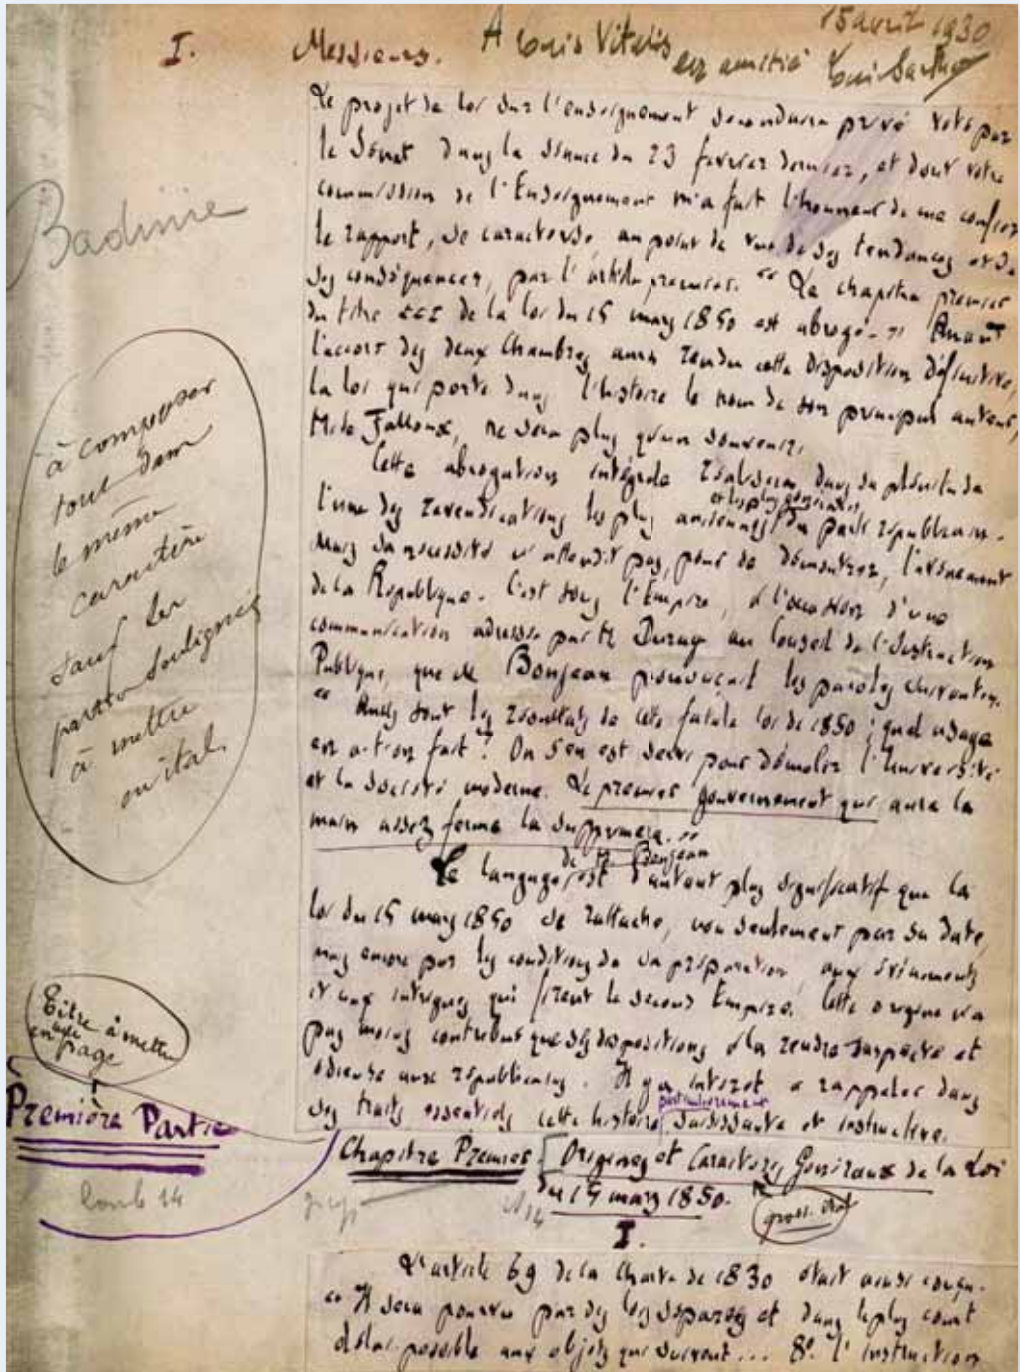 15 avril 1930
I. Messieurs. A Louis Vitalis
en amitié Louis Barthou
Le projet de loi sur l'enseignement secondaire privé voté par
le Sénat dans la séance du 23 février dernier, et dont votre
commission de l'Enseignement m'a fait l'honneur de me confier
le rapport, se caractérise, au point de vue de ses tendances et de
ses conséquences, par l'article premier. " Le chapitre premier
du titre III de la loi du 15 mars 1850 est abrogé. " Quand
l'accord des deux Chambres aura rendu cette disposition définitive,
la loi qui porte dans l'histoire le nom de son principal auteur,
M. de Falloux, ne sera plus qu'un souvenir.
Cette abrogation intégrale réalisera dans sa plénitude
l'une des revendications les plus anciennes et les plus générales du parti républicain.
Mais sa nécessité n'attendit pas, pour se démontrer, l'avènement
de la République. C'est sous l'Empire, à l'occasion d'une
communication adressée par M. Duruy au Conseil de l'Instruction
Publique, que M. Bonjean prononçait les paroles suivantes.
" Quels sont les résultats de cette fatale loi de 1850 ; quel usage
en a-t-on fait ? On s'en est servi pour démolir l'Université
et la société moderne. Le premier gouvernement qui aura la
main assez ferme la supprimera. "
Le langage de M. Bonjean est d'autant plus significatif que la
loi du 15 mars 1850 se rattache, non seulement par sa date,
mais encore par les conditions de sa préparation, aux événements
et aux intrigues qui firent le second Empire. Cette origine n'a
pas moins contribué que ses dispositions à la rendre suspecte et
odieuse aux républicains. Il y a intérêt à rappeler dans
ses traits essentiels cette histoire particulièrement saisissante et instructive.
Badinie
à composer
tout dans
le même
caractère
sauf les
parties soulignées
à mettre
en ital.
Titre à mettre
en page
Première Partie
Chapitre Premier [Origines et Caractères Généraux de la Loi
du 15 mars 1850.
gross. ital
I.
L'article 69 de la Charte de 1830 était ainsi conçu.
" Il sera pourvu par des lois séparées et dans le plus court
délai possible aux objets qui suivent... 8°. l'instruction